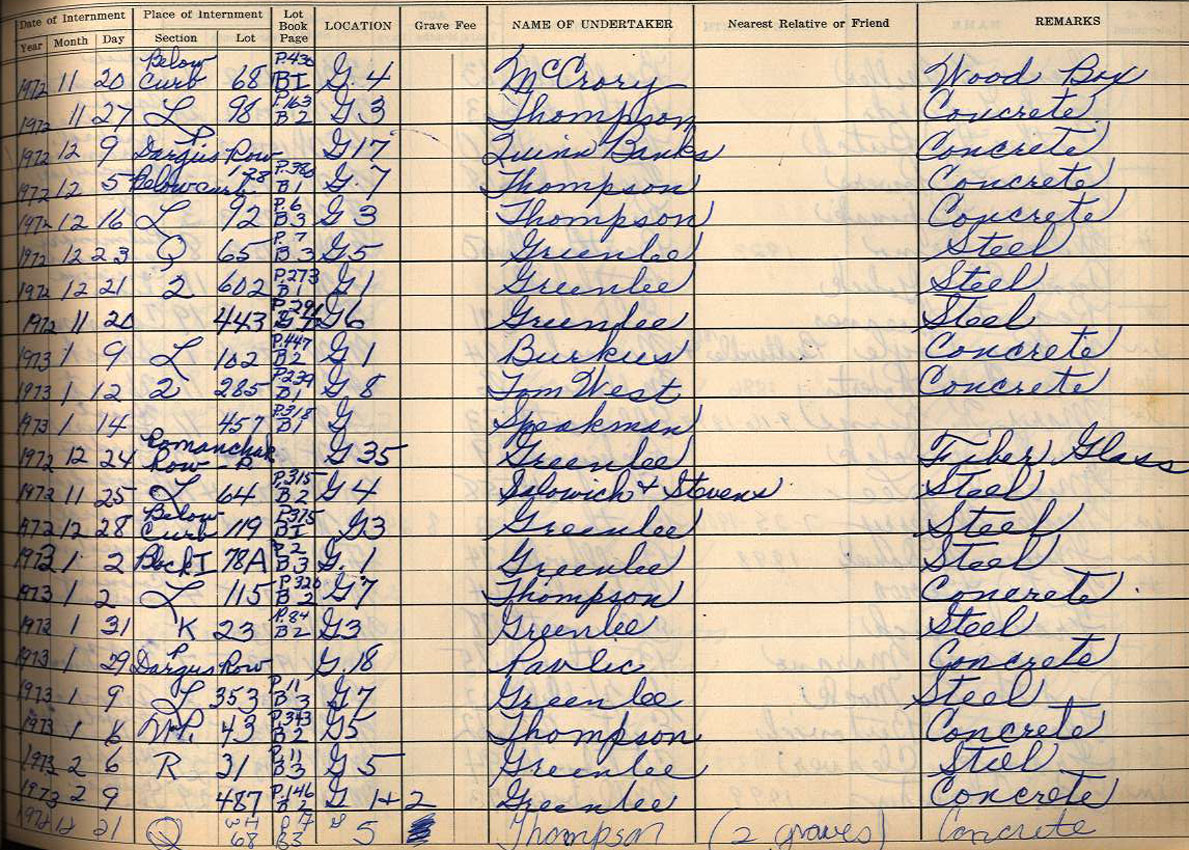 Date of Internment Place of Internment Lot Book Page LOCATION Grave Fee NAME OF UNDERTAKER Nearest Relative or Friend REMARKS
Year Month Day Section Lot
1972 11 20 Below Curb 68 P.430 B1 G.4 McCrory Wood Box
1972 11 27 L 98 P.163 B2 G.3 Thompson Concrete
1972 12 9 P Dargus Row G17 Quinn Banks Concrete
1972 12 5 Below curb 128 P.380 B1 G.7 Thompson Concrete
1972 12 16 L 92 P.6 B.3 G3 Thompson Concrete
1972 12 23 Q 65 P.7 B.3 G5 Greenlee Steel
1972 12 21 2 602 P.273 B1 G1 Greenlee Steel
1972 11 20 443 G6 Greenlee Steel
1973 1 9 L 102 P.447 B2 G1 Burkus Concrete
1973 1 12 2 285 P.239 B1 G.8 Tom West Concrete
1973 1 14 457 P.318 B1 G Speakman
1972 12 24 Romanchak Row - P G35 Greenlee Fiber Glass
1972 11 25 L 64 P.315 B2 G4 & Stevens Steel
1972 12 28 Below Curb 119 P375 B1 G3 Greenlee Steel
1973 1 2 Block I 78A P.2 B3 G.1 Greenlee Steel
1973 1 2 L 115 P.320 B2 G7 Thompson Concrete
1973 1 31 K 23 P.84 B2 G3 Greenlee Steel
1973 1 29 P Dargus Row G.18 Pavlic Concrete
1973 1 9 L 353 P.11 B3 G7 Greenlee Steel
1973 1 43 P.343 B2 G5 Thompson Concrete
1973 2 6 R 31 P.11 B3 G5 Greenlee Steel
1973 2 9 487 P.146 B2 G 1+2 Greenlee Concrete
1972 12 21 Q 68 B3 G 5 Thompson (2 graves) Concrete